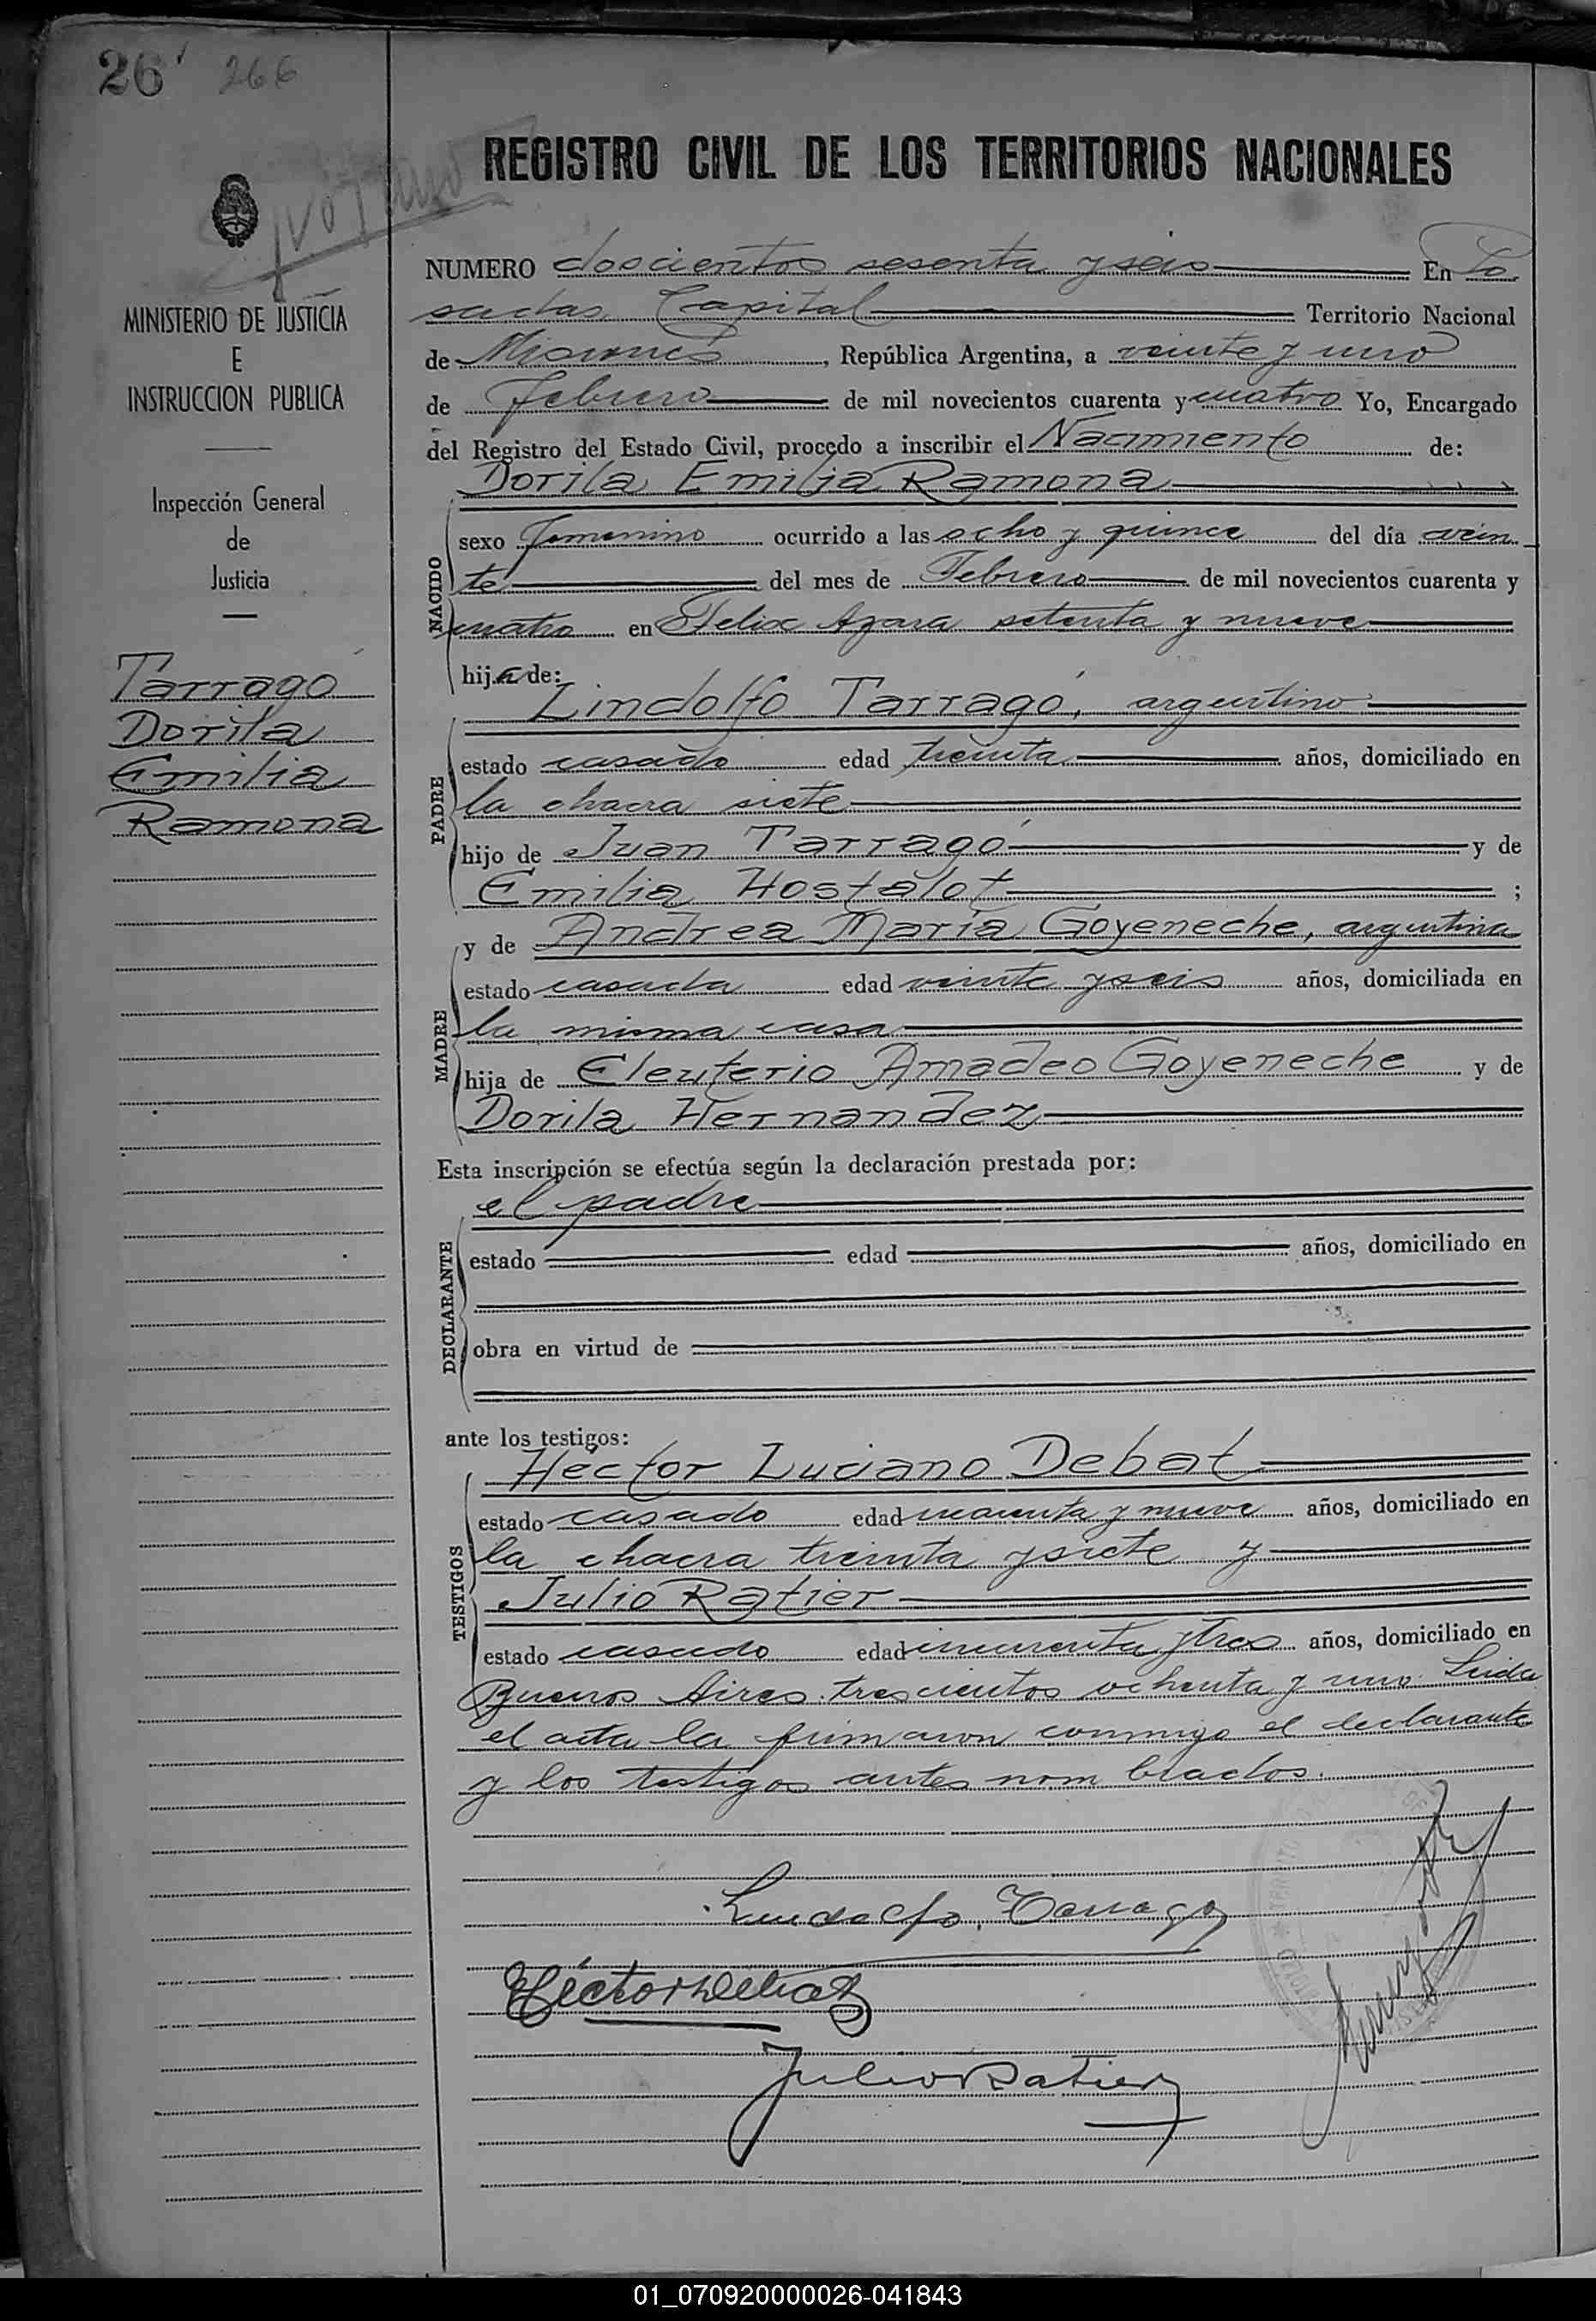 26 266
REGISTRO CIVIL DE LOS TERRITORIOS NACIONALES
MINISTERIO DE JUSTICIA
E
INSTRUCCION PUBLICA
Inspección General
de
Justicia
Tarragó
Dorila
Emilia
Ramona
NUMERO doscientos sesenta y seis En Po
sadas Capital Territorio Nacional
de Misiones, República Argentina, a veinte y uno
de Febrero de mil novecientos cuarenta y cuatro Yo, Encargado
del Registro del Estado Civil, procedo a inscribir el Nacimiento de:
Dorila Emilia Ramona
NACIDO
sexo femenino ocurrido a las ocho y quince del día vein
te del mes de Febrero de mil novecientos cuarenta y
cuatro en Felix Azara setenta y nueve
hija de:
Lindolfo Tarragó, argentino
PADRE
estado casado edad treinta años, domiciliado en
la chacra siete
hijo de Juan Tarragó y de
Emilia Hostalot ;
y de Andrea María Goyeneche, argentina
MADRE
estado casada edad veinte y seis años, domiciliada en
la misma casa
hija de Eleuterio Amadeo Goyeneche y de
Dorila Hernandez
Esta inscripción se efectúa según la declaración prestada por:
el padre
DECLARANTE
estado edad años, domiciliado en
obra en virtud de
ante los testigos:
Héctor Luciano Debat
TESTIGOS
estado casado edad cuarenta y nueve años, domiciliado en
la chacra treinta y siete y
Julio Ratier
estado casado edad cincuenta y tres años, domiciliado en
Buenos Aires trescientos ochenta y uno. Leida
el acta la firmaron conmigo el declarante
y los testigos antes nombrados.
Lindolfo Tarrago
Héctor Debat
Julio Ratier
01_070920000026-041843